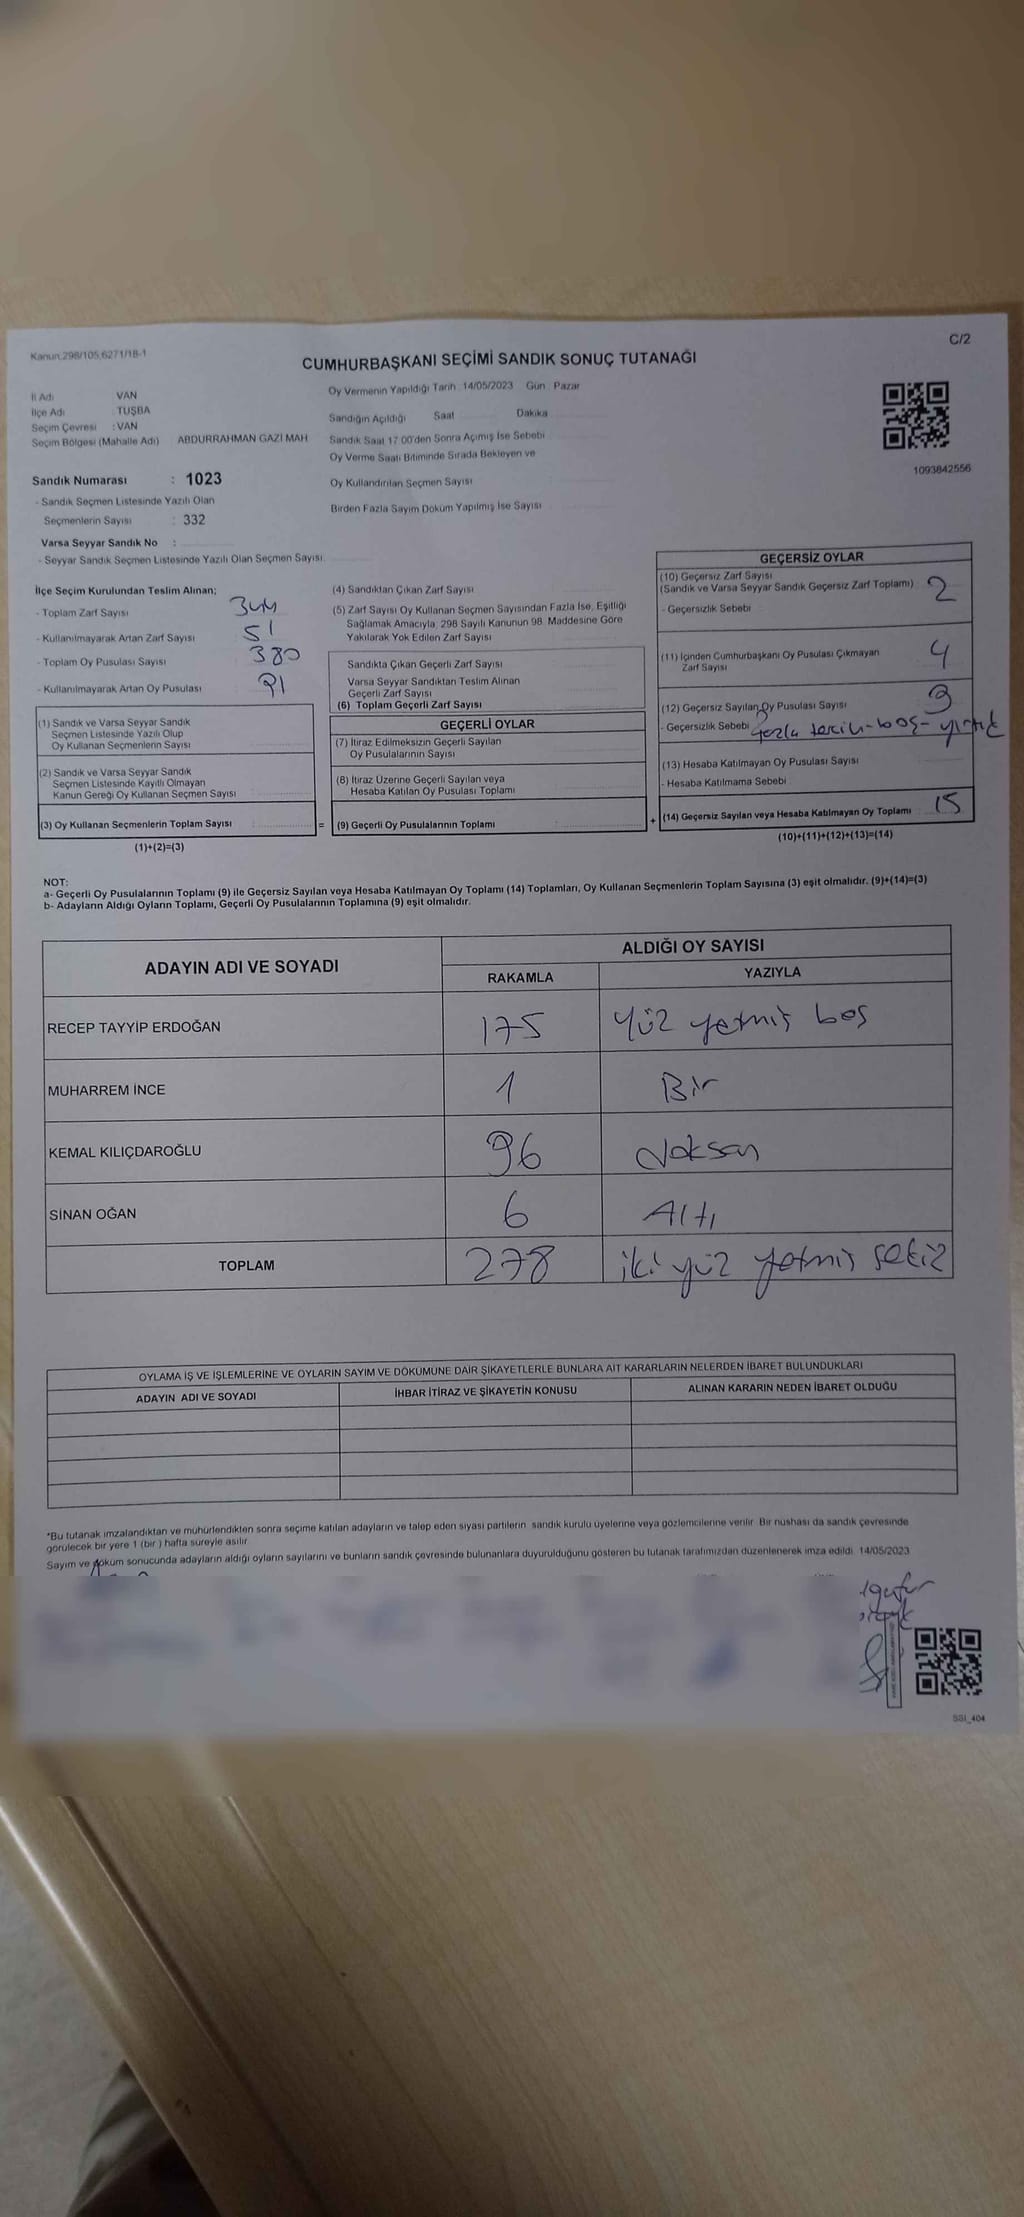 Kanun.298/105,6271/18-1
C/2
CUMHURBAŞKANI SEÇİMİ SANDIK SONUÇ TUTANAĞI
İl Adı VAN
İlçe Adı : TUŞBA
Seçim Çevresi : VAN
Seçim Bölgesi (Mahalle Adı) ABDURRAHMAN GAZİ MAH
Oy Vermenin Yapıldığı Tarih : 14/05/2023 Gün : Pazar
Sandığın Açıldığı Saat Dakika
Sandık Saat 17:00'den Sonra Açımış İse Sebebi
Oy Verme Saati Bitiminde Sırada Bekleyen ve
Oy Kullandırılan Seçmen Sayısı
Birden Fazla Sayım Döküm Yapılmış İse Sayısı
1093842556
Sandık Numarası : 1023
- Sandık Seçmen Listesinde Yazılı Olan
Seçmenlerin Sayısı : 332
Varsa Seyyar Sandık No :
- Seyyar Sandık Seçmen Listesinde Yazılı Olan Seçmen Sayısı:
İlçe Seçim Kurulundan Teslim Alınan;
- Toplam Zarf Sayısı 344
- Kullanılmayarak Artan Zarf Sayısı 51
- Toplam Oy Pusulası Sayısı 380
- Kullanılmayarak Artan Oy Pusulası
(1) Sandık ve Varsa Seyyar Sandık
Seçmen Listesinde Yazılı Olup
Oy Kullanan Seçmenlerin Sayısı
(2) Sandık ve Varsa Seyyar Sandık
Seçmen Listesinde Kayıtlı Olmayan
Kanun Gereği Oy Kullanan Seçmen Sayısı
(3) Oy Kullanan Seçmenlerin Toplam Sayısı :
(1)+(2)=(3)
(4) Sandıktan Çıkan Zarf Sayısı
(5) Zarf Sayısı Oy Kullanan Seçmen Sayısından Fazla İse, Eşitliği
Sağlamak Amacıyla, 298 Sayılı Kanunun 98. Maddesine Göre
Yakılarak Yok Edilen Zarf Sayısı
Sandıkta Çıkan Geçerli Zarf Sayısı
Varsa Seyyar Sandıktan Teslim Alınan
Geçerli Zarf Sayısı
(6) Toplam Geçerli Zarf Sayısı
GEÇERLİ OYLAR
(7) İtiraz Edilmeksizin Geçerli Sayılan
Oy Pusulalarının Sayısı
(8) İtiraz Üzerine Geçerli Sayılan veya
Hesaba Katılan Oy Pusulası Toplamı
= (9) Geçerli Oy Pusulalarının Toplamı :
GEÇERSİZ OYLAR
(10) Geçersiz Zarf Sayısı
(Sandık ve Varsa Seyyar Sandık Geçersiz Zarf Toplamı) 2
- Geçersizlik Sebebi
(11) İçinden Cumhurbaşkanı Oy Pusulası Çıkmayan
Zarf Sayısı 4
(12) Geçersiz Sayılan Oy Pusulası Sayısı
- Geçersizlik Sebebi fazla tercih-boş-yırtık
(13) Hesaba Katılmayan Oy Pusulası Sayısı
- Hesaba Katılmama Sebebi
+ (14) Geçersiz Sayılan veya Hesaba Katılmayan Oy Toplamı 15
(10)+(11)+(12)+(13)=(14)
NOT:
a- Geçerli Oy Pusulalarının Toplamı (9) ile Geçersiz Sayılan veya Hesaba Katılmayan Oy Toplamı (14) Toplamları, Oy Kullanan Seçmenlerin Toplam Sayısına (3) eşit olmalıdır. (9)+(14)=(3)
b- Adayların Aldığı Oyların Toplamı, Geçerli Oy Pusulalarının Toplamına (9) eşit olmalıdır.
ADAYIN ADI VE SOYADI
ALDIĞI OY SAYISI
RAKAMLA YAZIYLA
RECEP TAYYİP ERDOĞAN 175 Yüz yetmiş beş
MUHARREM İNCE 1 Bir
KEMAL KILIÇDAROĞLU 96 doksan
SİNAN OĞAN 6 Altı
TOPLAM 278 iki yüz yetmiş sekiz
OYLAMA İŞ VE İŞLEMLERİNE VE OYLARIN SAYIM VE DÖKÜMÜNE DAİR ŞİKAYETLERLE BUNLARA AİT KARARLARIN NELERDEN İBARET BULUNDUKLARI
ADAYIN ADI VE SOYADI İHBAR İTİRAZ VE ŞİKAYETİN KONUSU ALINAN KARARIN NEDEN İBARET OLDUĞU
*Bu tutanak imzalandıktan ve mühürlendikten sonra seçime katılan adayların ve talep eden siyasi partilerin sandık kurulu üyelerine veya gözlemcilerine verilir. Bir nüshası da sandık çevresinde
görülecek bir yere 1 (bir) hafta süreyle asılır.
Sayım ve döküm sonucunda adayların aldığı oyların sayılarını ve bunların sandık çevresinde bulunanlara duyurulduğunu gösteren bu tutanak tarafımızdan düzenlenerek imza edildi. 14/05/2023
SSI_404